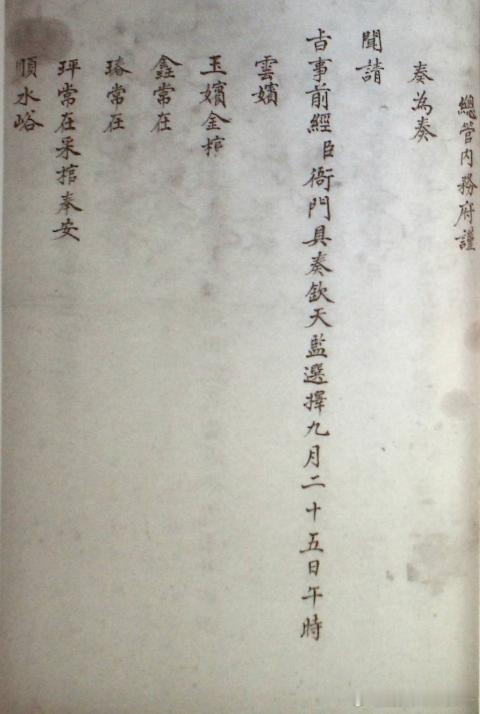 總管內務府謹
奏為奏
聞請
旨事前經臣衙門具奏欽天監選擇九月二十五日午時
雲嬪
玉嬪金棺
鑫常在
瑃常在
玶常在采棺奉安
順水峪